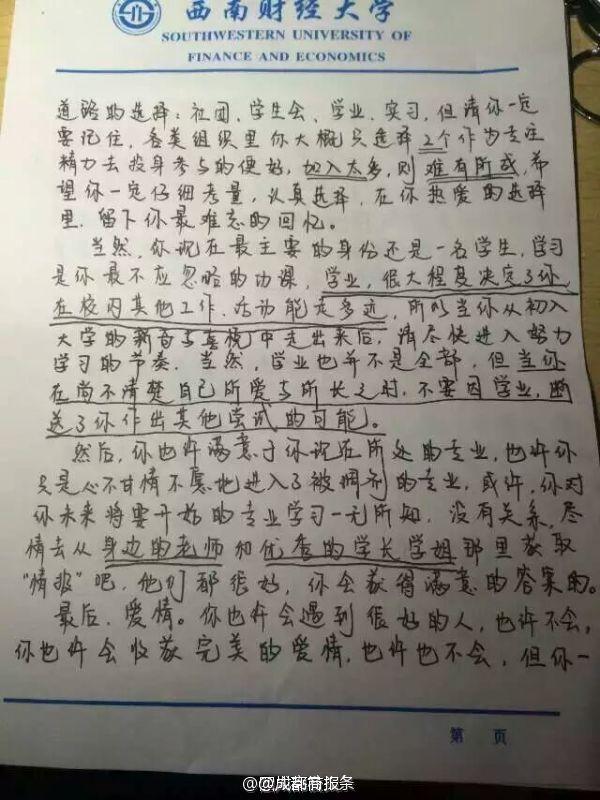 西南财经大学
SOUTHWESTERN UNIVERSITY OF
FINANCE AND ECONOMICS
道路的选择:社团、学生会、学业、实习,但请你一定
要记住,各类组织里你大概只选择2个作为专注
精力去投身参与的便好,加入太多,则难有所成,希
望你一定仔细考量,认真选择,在你热爱的选择
里,留下你最难忘的回忆。
当然,你现在最主要的身份还是一名学生,学习
是你最不应忽略的功课,学业,很大程度决定了你
在校内其他工作、活动能走多远,所以当你从初入
大学的新奇与喜悦中走出来后,请尽快进入努力
学习的节奏。当然,学业也并不是全部,但当你
在尚不清楚自己所爱与所长之时,不要因学业,断
送了你作出其他尝试的可能。
然后,你也许满意于你现在所处的专业,也许你
只是心不甘情不愿地进入了被调剂的专业,或许,你对
你未来将要开始的专业学习一无所知,没有关系,尽
情去从身边的老师和优秀的学长学姐那里获取
“情报”吧,他们都很好,你会获得满意的答案的。
最后,爱情。你也许会遇到很好的人,也许不会,
你也许会收获完美的爱情,也许也不会,但你一
第 页
@成都商报